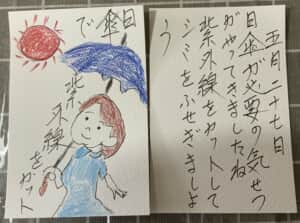 五月二十七日
日傘が必要の気せつ
がやってきましたね
紫外線をカットして
シミをふせぎましょ
う
日傘で
紫外線をカット